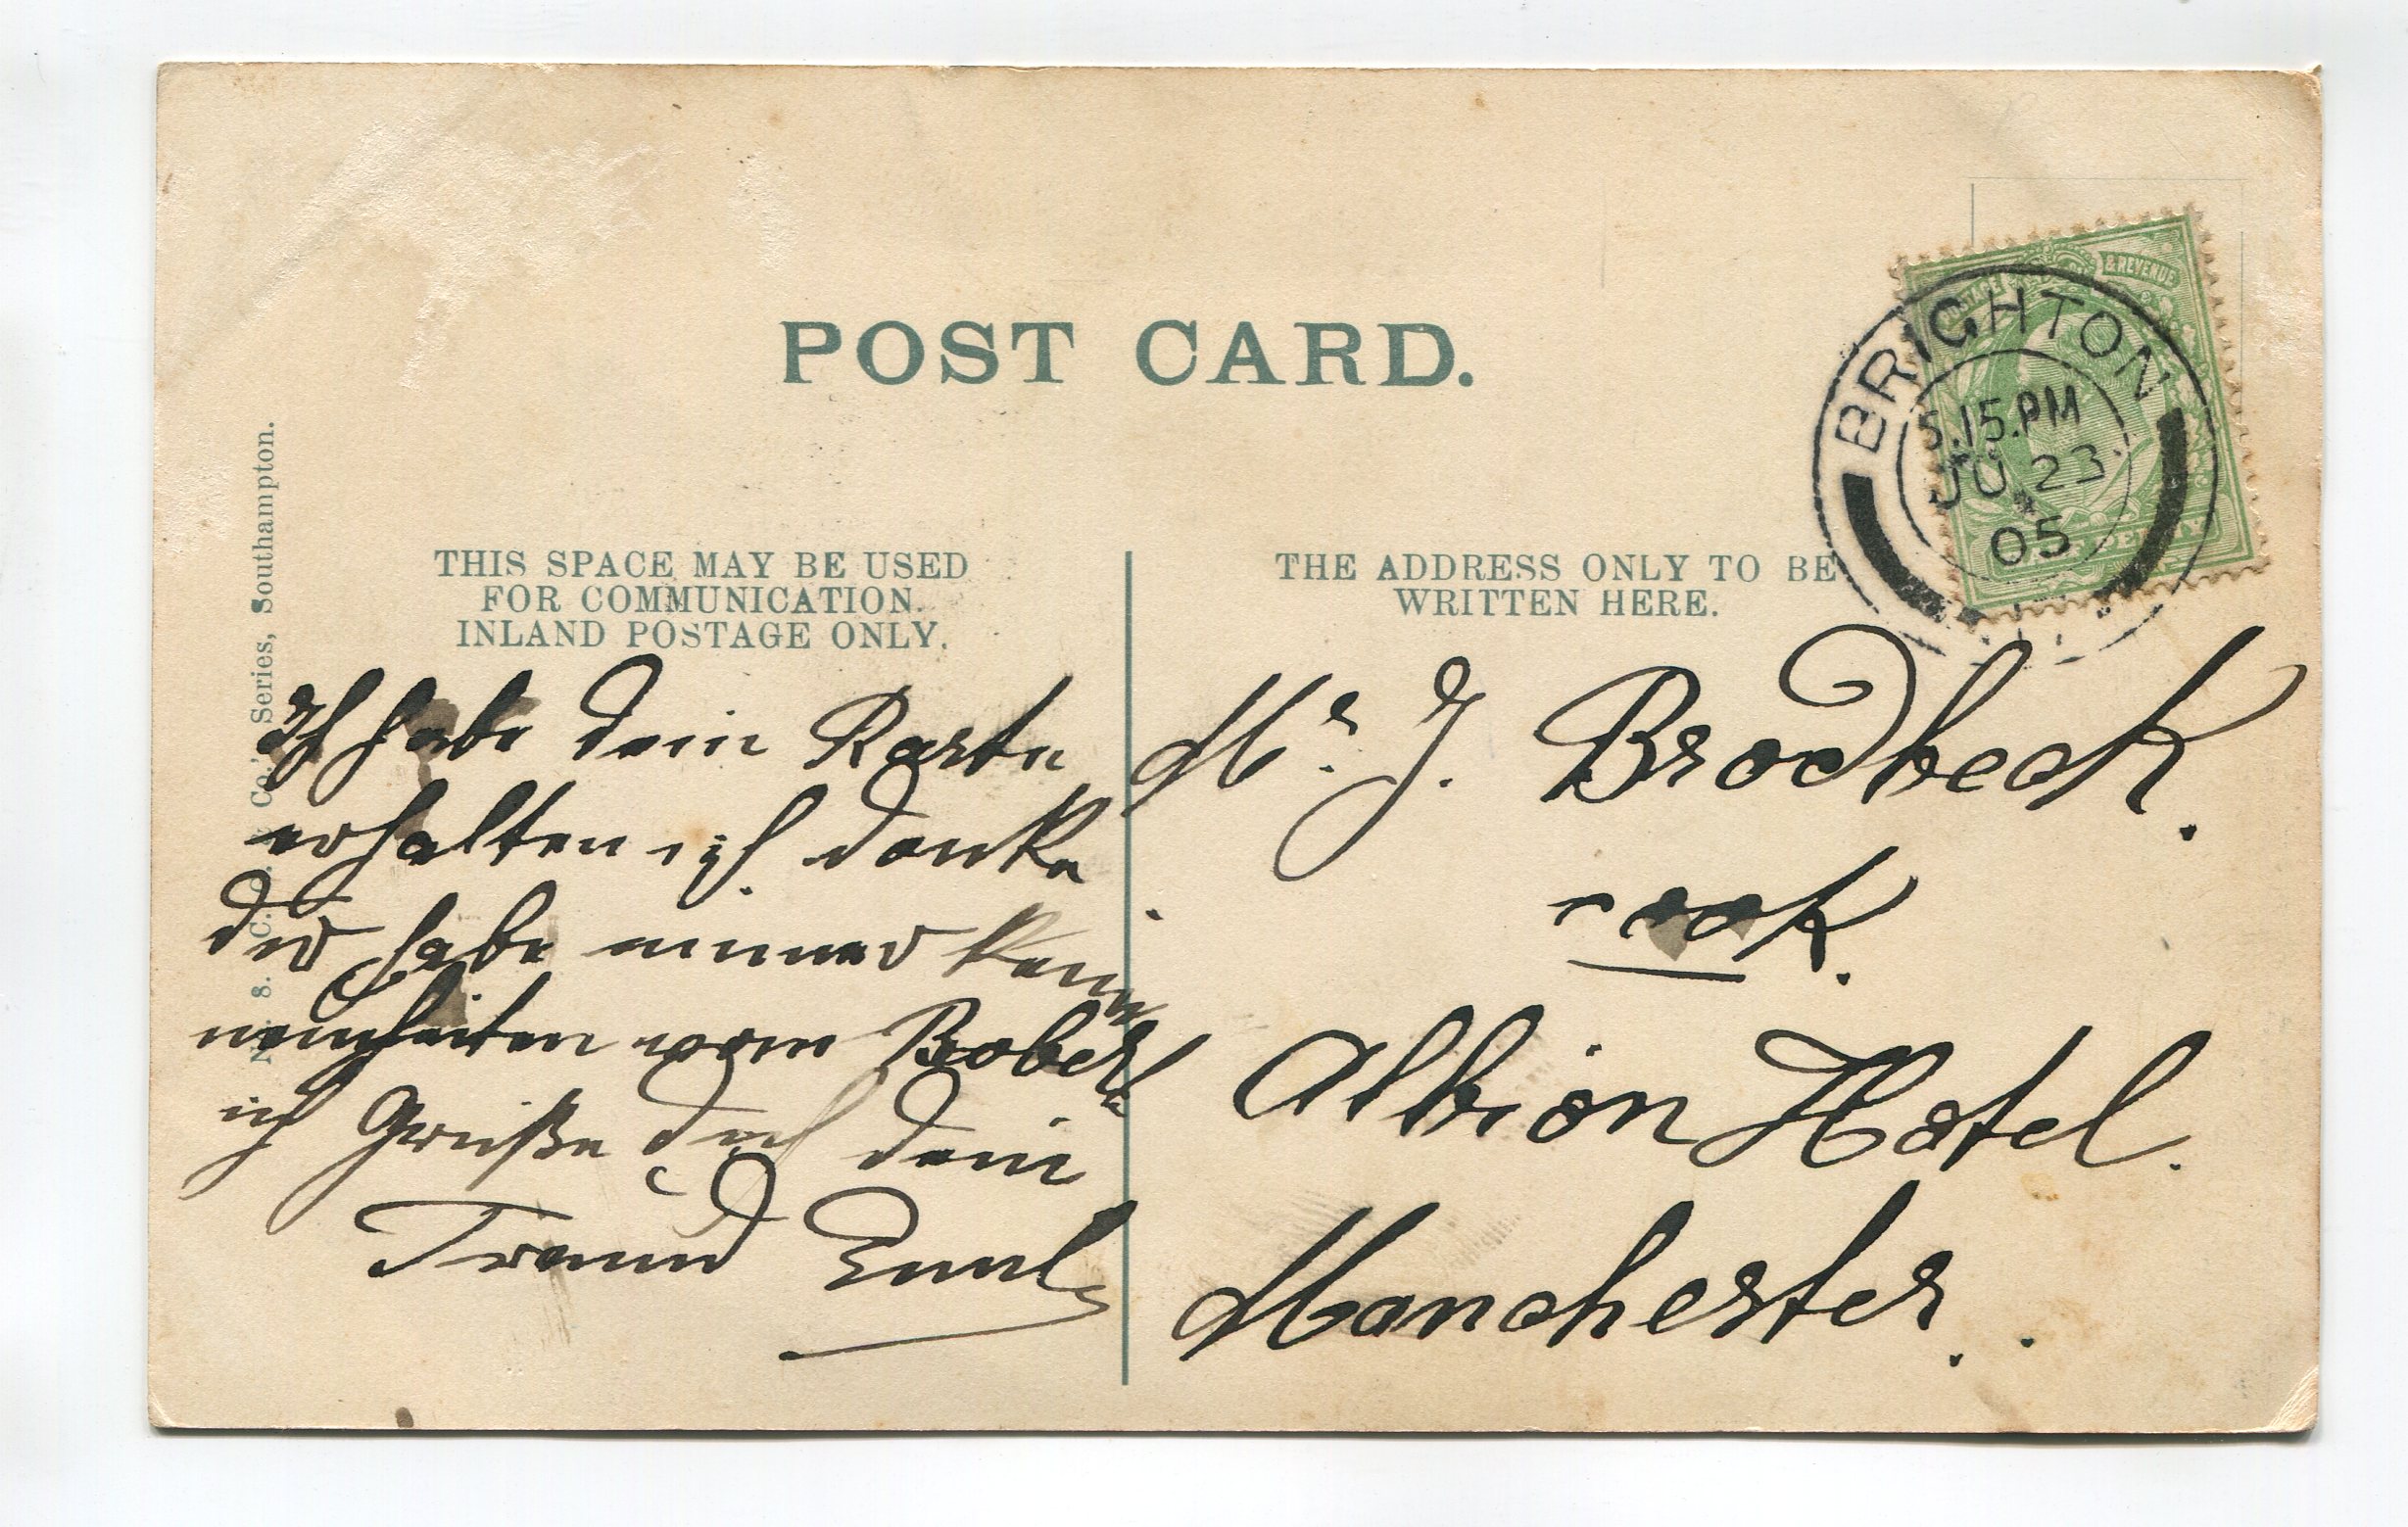 POST CARD.
& REVENUE
BRIGHTON
5.15.PM
JU 23
05
THIS SPACE MAY BE USED
FOR COMMUNICATION.
INLAND POSTAGE ONLY.
THE ADDRESS ONLY TO BE
WRITTEN HERE.
Co.'s Series, Southampton.
Ich habe dein Karte
erhalten ich danke
dir habe immer kein
neucheiten vom Bober
ich Grüße dich dein
Freund Emil
Mr. J. Brodbeck.
cook.
Albion Hotel.
Manchester.